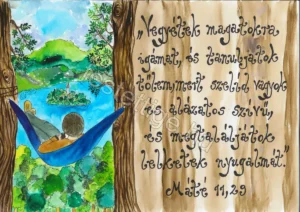 „Vegyétek magatokra
igámat, és tanuljátok
tőlem, mert szelíd vagyok
és alázatos szívű,
és megtaláljátok
lelketek nyugalmát."
Máté 11,29